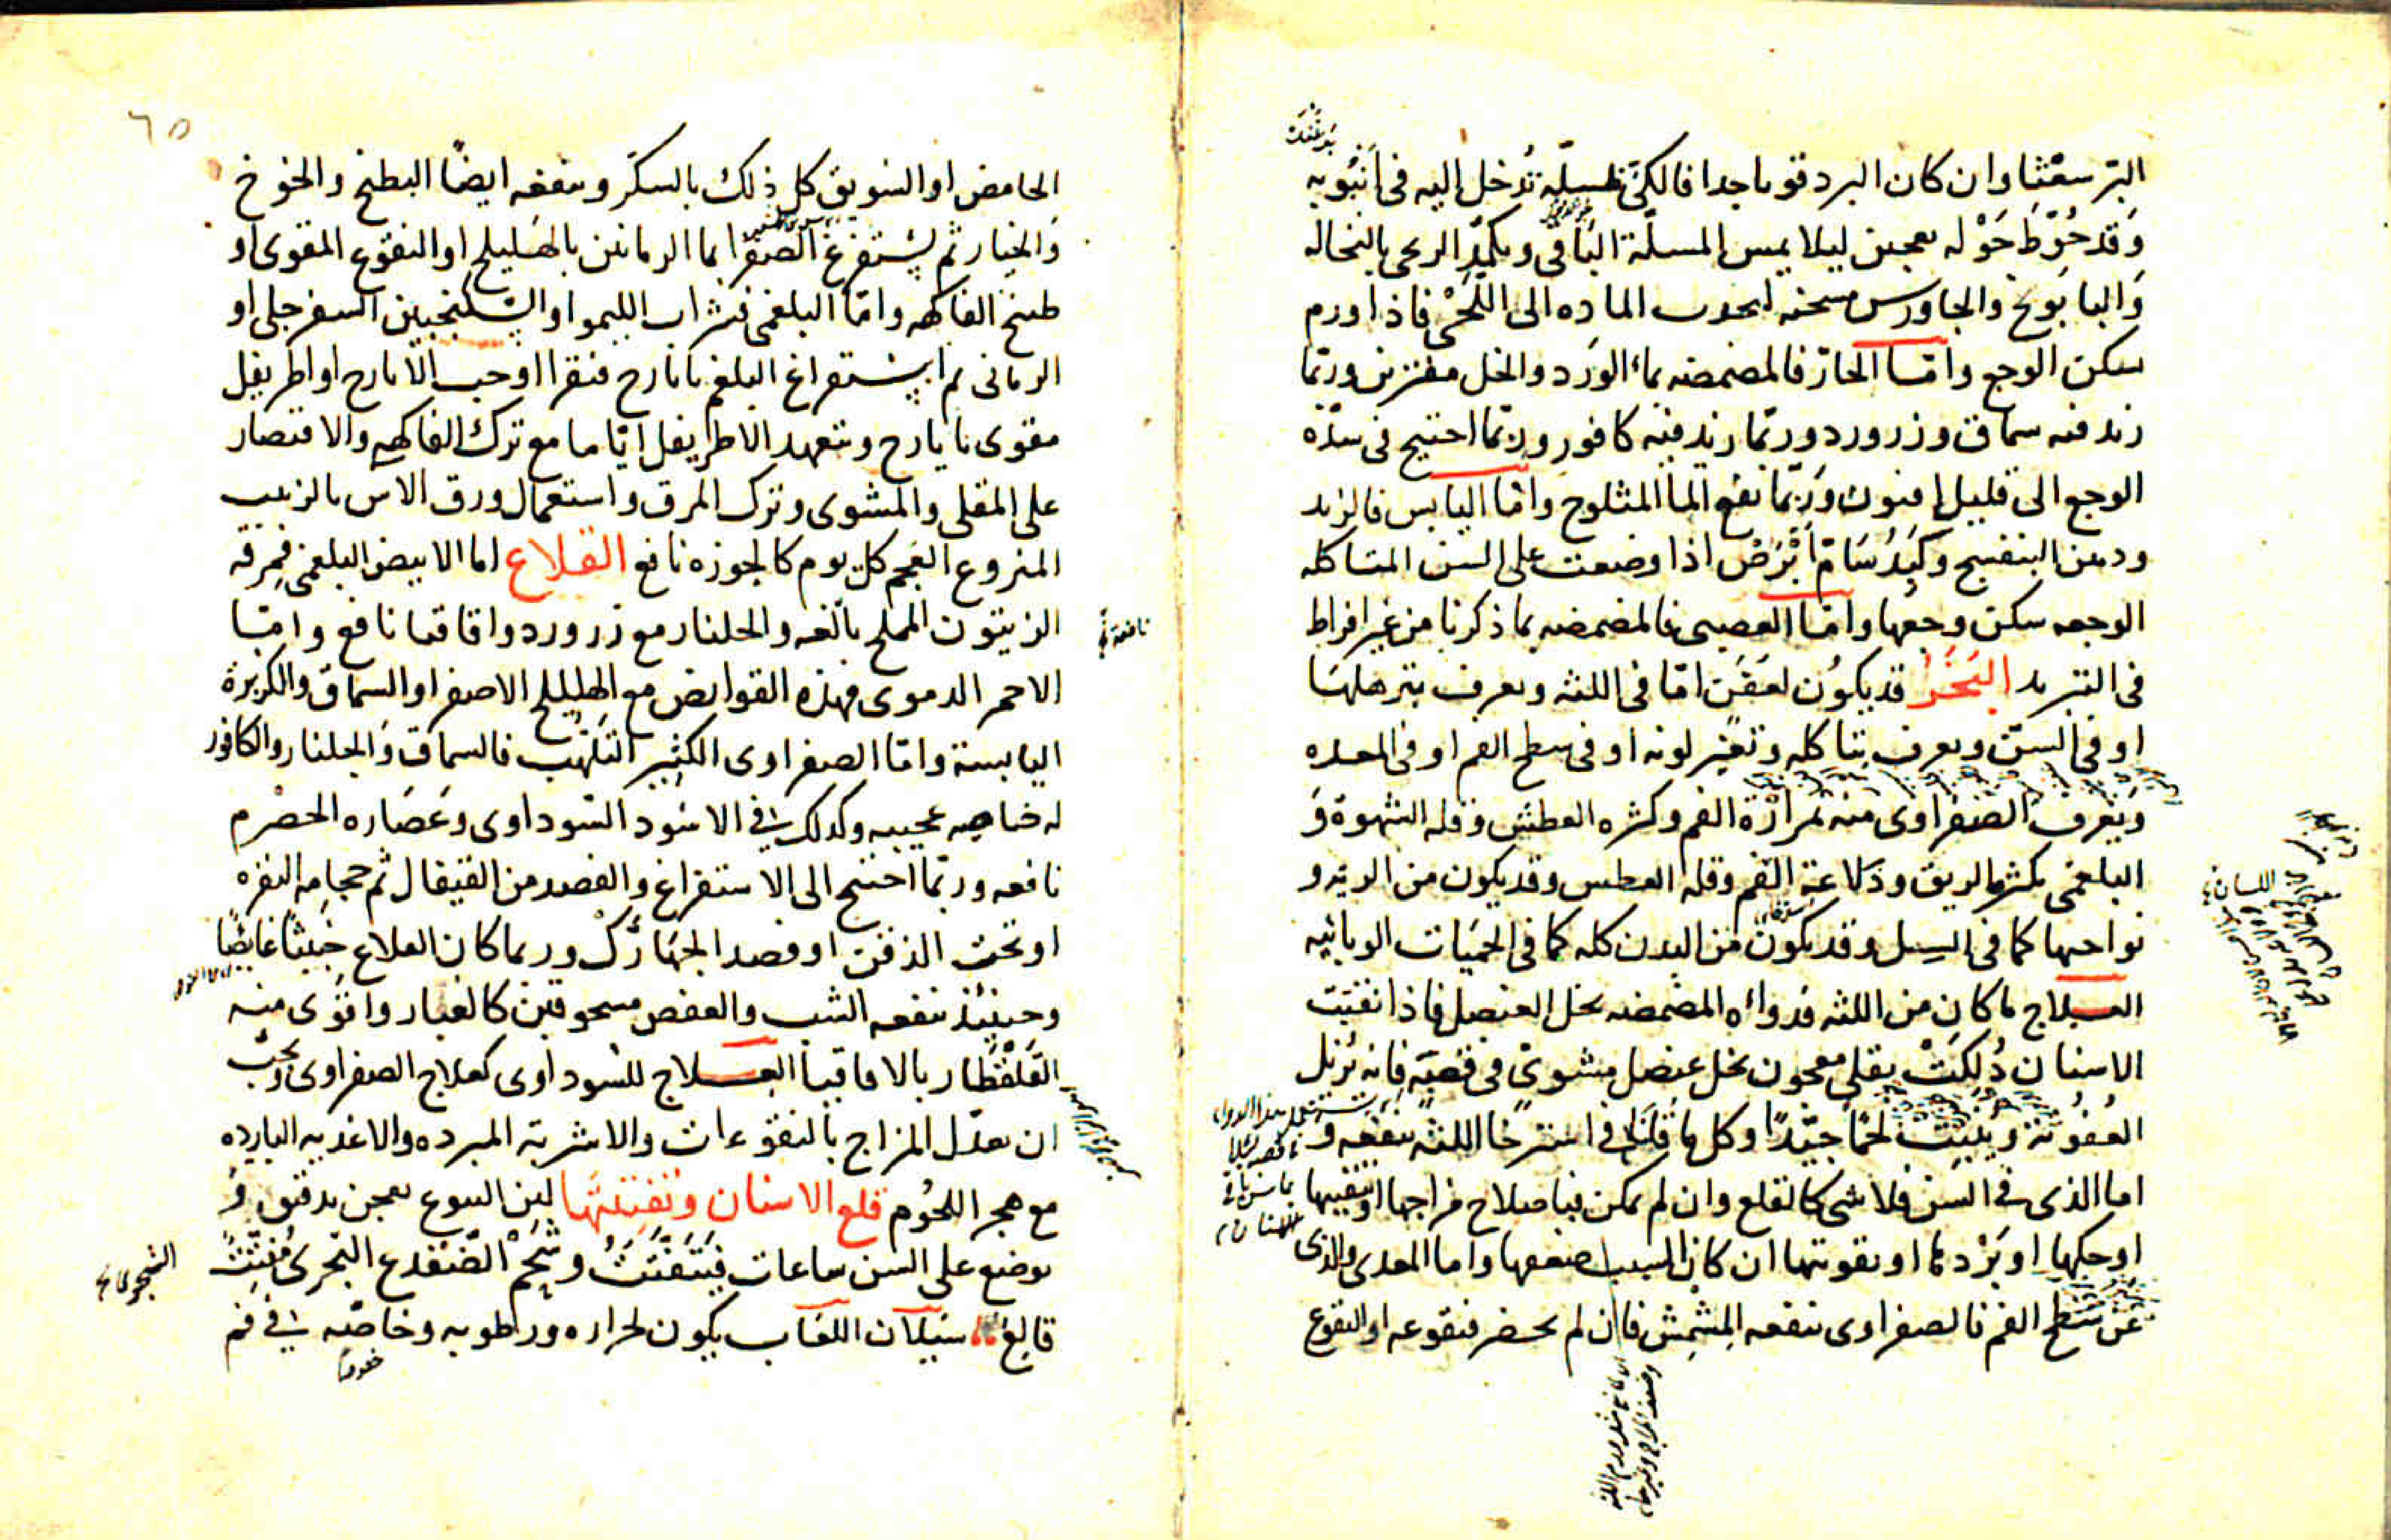 البرسعثا وان كان البرد قويا جدا فالكى بمسلّة تُدخل اليه فى أنبُوبه
وَقد حُوّط حَوْله بعجين ليلا يمس المسلّة البَاقى ويكمّد الوحى بالنخاله
وَالبابَونج والجاورس مسخنه ليجدب الماده الى اللَّحْى فاذا ورم
سكن الوجع وامّا الحارّ فالمضمضه بماء الوَرد والخل مفترين وربّما
زيد فيه سماق وزرورد وربّما زيد فيه كافور وربّما احتيج فى شدّة
الوجع الى قليل افيون وَربّما نفع الماالمثلوج وامّا اليابس فالزبد
ودهن البنفسج وكبَدُ سَامّ أَبْرَصْ اذا وضعت على السن المتاكله
الوجعه سكن وجعها وامّا العصبى فالمضمضه بما ذكرنا من غير افراط
فى التبريد البَخَرُ قد يكوُن لعَفَن امّا فى اللثه ويعرف بترهلهَا
او فى السنّ ويعرف بتاكله وتغيّر لونه او فى سطح الفم او فى المعده
وَيُعرف الصَفراوى منه بمرارَة الفم وكثره العطش وقله الشهوة وَ
البلغمى بكثره الريق ودَلاعَة الفم وقله العطس وقد يكون من الريّه و
نواحيها كما فى السِل وقد يكون من البدن كله كما فى الحميَات الوبائيه
العسلاج ما كان من اللثه فدواه المضمضه بخل العنصل فاذا نفتيت
الاسنان دُلكتْ بقلى معجون بخل عنصل مشوىّ فى قصبَه فانه يُزيل
العُفوُنة ويُنبِتُ لحمًا جيّدًا وكل ما قلنَا فى استرخا اللثه ينفعه و
اما الذى فى السَن فلا شى كالقلع وان لم يمكن فباصلاح مزاجها او تنقيتها
اوحكها او بَرْدها او بقوتها ان كان السبب ضعفها واما المعدى والذى
عن سَطح الفم فالصفراوى ينفعه المشمِش فان لم يحضر فنقوعه او النقوع
٦٥
الحامض او السويق كل ذلك بالسكّر وينفعه ايضًا البطيخ والخوخ
وَالخيار ثم يُستفرغ الصفرا بما الرمانين بالهَليلج او النقوَع المقوى او
طبيخ الفاكهه وامّا البلغمى فشراب الليمو او السكنجبين السفرجلى او
الرمانى ثم استفراغ البلغم بايارج فيقرا او حب الايارج او اطريفل
مقوى بايارج ويتعهد الاطريفل ايّاما مع ترك الفاكهه والاقتصار
على المقلى والمشوى وترك المرق واستعمال ورق الاس بالزبيب
المنزوع العَجم كل يوم كالجوزه نافع القلاع اما الابيض البلغمى فمرقه
الزيتون المملح بالغه والجلنار مع زرورد واقاقيا نافع وامّا
الاحمر الدموى فهذه القوابض مع الهليلج الاصفر او السمّاق والكزبرة
اليابسة وامّا الصفراوى الكثير التَلَهُّب فالسماق وَالجلنار والكافور
له خاصيه عجيبه وكدلك فى الاسَود السَوداوى وعَصاره الحصْرم
نافعه وربّما احتيج الى الاستفراغ والفصد من القيفال ثم حجامه النقره
او تحت الذقن او فصد الجهَارَكْ وربما كان القلاع خبيثا غايصًا
وحينئذ ينفعه الشب والعفص مسحوقين كالغبار واقوَى منه
القَلقطار بالاقاقيا العسلاج للسَوداوى كعلاج الصفراوى ويجبّ
ان يعدّل المزاج بالنقوعات والاشربة المبرده والاغديه البارده
مع هجر اللحوُم قلع الاسنان وتفتيتهَا لبن اليتوع يعجن بدقيق وَ
يوضع على السن ساعات فيتفَتّتُ وشَحْم الضّفدع البّحرى مُفتِّتُ
قالِع سَيلان اللعَاب يكون لحراره ورطوبه وخاصّه فى فم